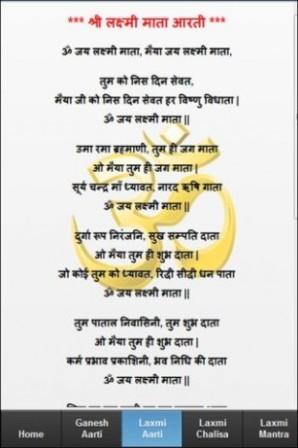 *** श्री लक्ष्मी माता आरती ***
ॐ जय लक्ष्मी माता, मैया जय लक्ष्मी माता,
तुम को निस दिन सेवत,
मैया जी को निस दिन सेवत हर विष्णु विधाता |
ॐ जय लक्ष्मी माता ||
उमा रमा ब्रहमाणी, तुम ही जग माता
ओ मैया तुम ही जग माता |
सूर्य चन्द्र माँ ध्यावत, नारद ऋषि गाता
ॐ जय लक्ष्मी माता ||
दुर्गा रूप निरंजनि, सुख सम्पति दाता
ओ मैया तुम ही शुभ दाता |
जो कोई तुम को ध्यावत, रिद्धी सीद्धी धन पाता
ॐ जय लक्ष्मी माता ||
तुम पाताल निवासिनी, तुम शुभ दाता
ओ मैया तुम ही शुभ दाता |
कर्म प्रभाव प्रकाशिनी, भव निधि की दाता
ॐ जय लक्ष्मी माता ||
Home
Ganesh Aarti
Laxmi Aarti
Laxmi Chalisa
Laxmi Mantra